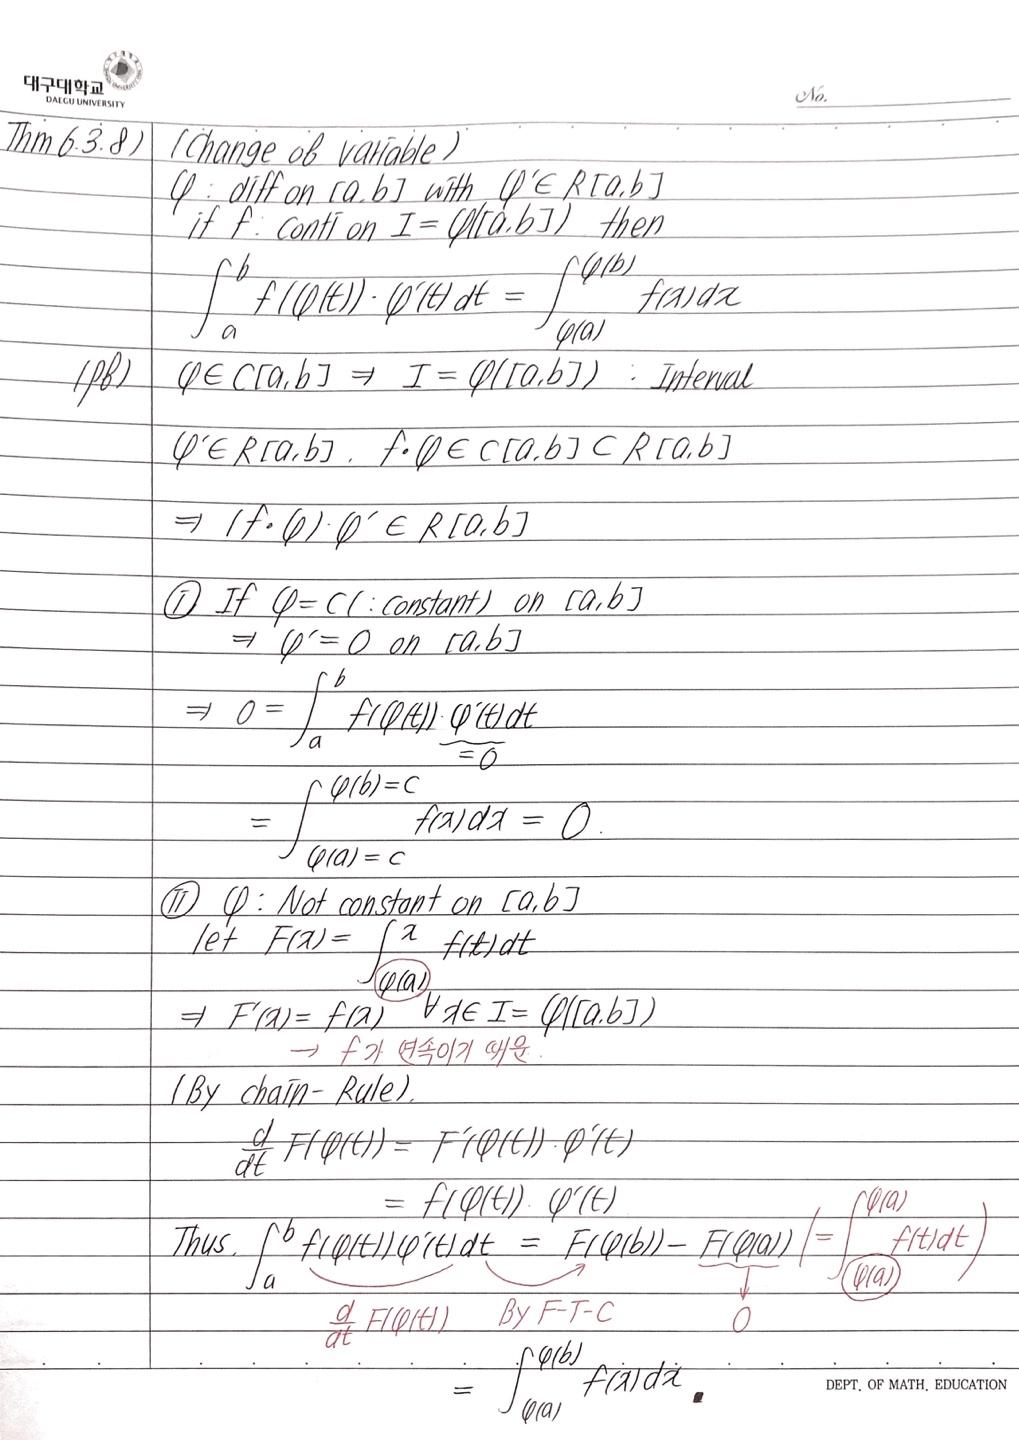 대구대학교
DAEGU UNIVERSITY
No.
Thm 6.3.8) (Change of variable)
φ : diff on [a,b] with φ'∈ R[a,b]
if f : conti on I = φ([a,b]) then
∫_a^b f(φ(t))·φ'(t)dt = ∫_{φ(a)}^{φ(b)} f(x)dx
(pf) φ∈C[a,b] ⇒ I = φ([a,b]) : Interval
φ'∈R[a,b]. f∘φ∈C[a,b]⊂R[a,b]
⇒ (f∘φ)·φ' ∈ R[a,b]
Ⓘ If φ=C(:constant) on [a,b]
⇒ φ'=0 on [a,b]
⇒ 0 = ∫_a^b f(φ(t))·φ'(t)dt
=0
= ∫_{φ(a)=c}^{φ(b)=c} f(x)dx = 0.
Ⅱ φ : Not constant on [a,b]
let F(x) = ∫_{φ(a)}^x f(t)dt
⇒ F'(x) = f(x) ∀x∈I=φ([a,b])
→ f가 연속이기 때문.
(By chain-Rule).
d/dt F(φ(t)) = F'(φ(t))·φ'(t)
= f(φ(t))·φ'(t)
Thus. ∫_a^b f(φ(t))φ'(t)dt = F(φ(b)) - F(φ(a)) (= ∫_{φ(a)}^{φ(a)} f(t)dt)
d/dt F(φ(t)) By F-T-C 0
= ∫_{φ(a)}^{φ(b)} f(x)dx.
DEPT. OF MATH. EDUCATION